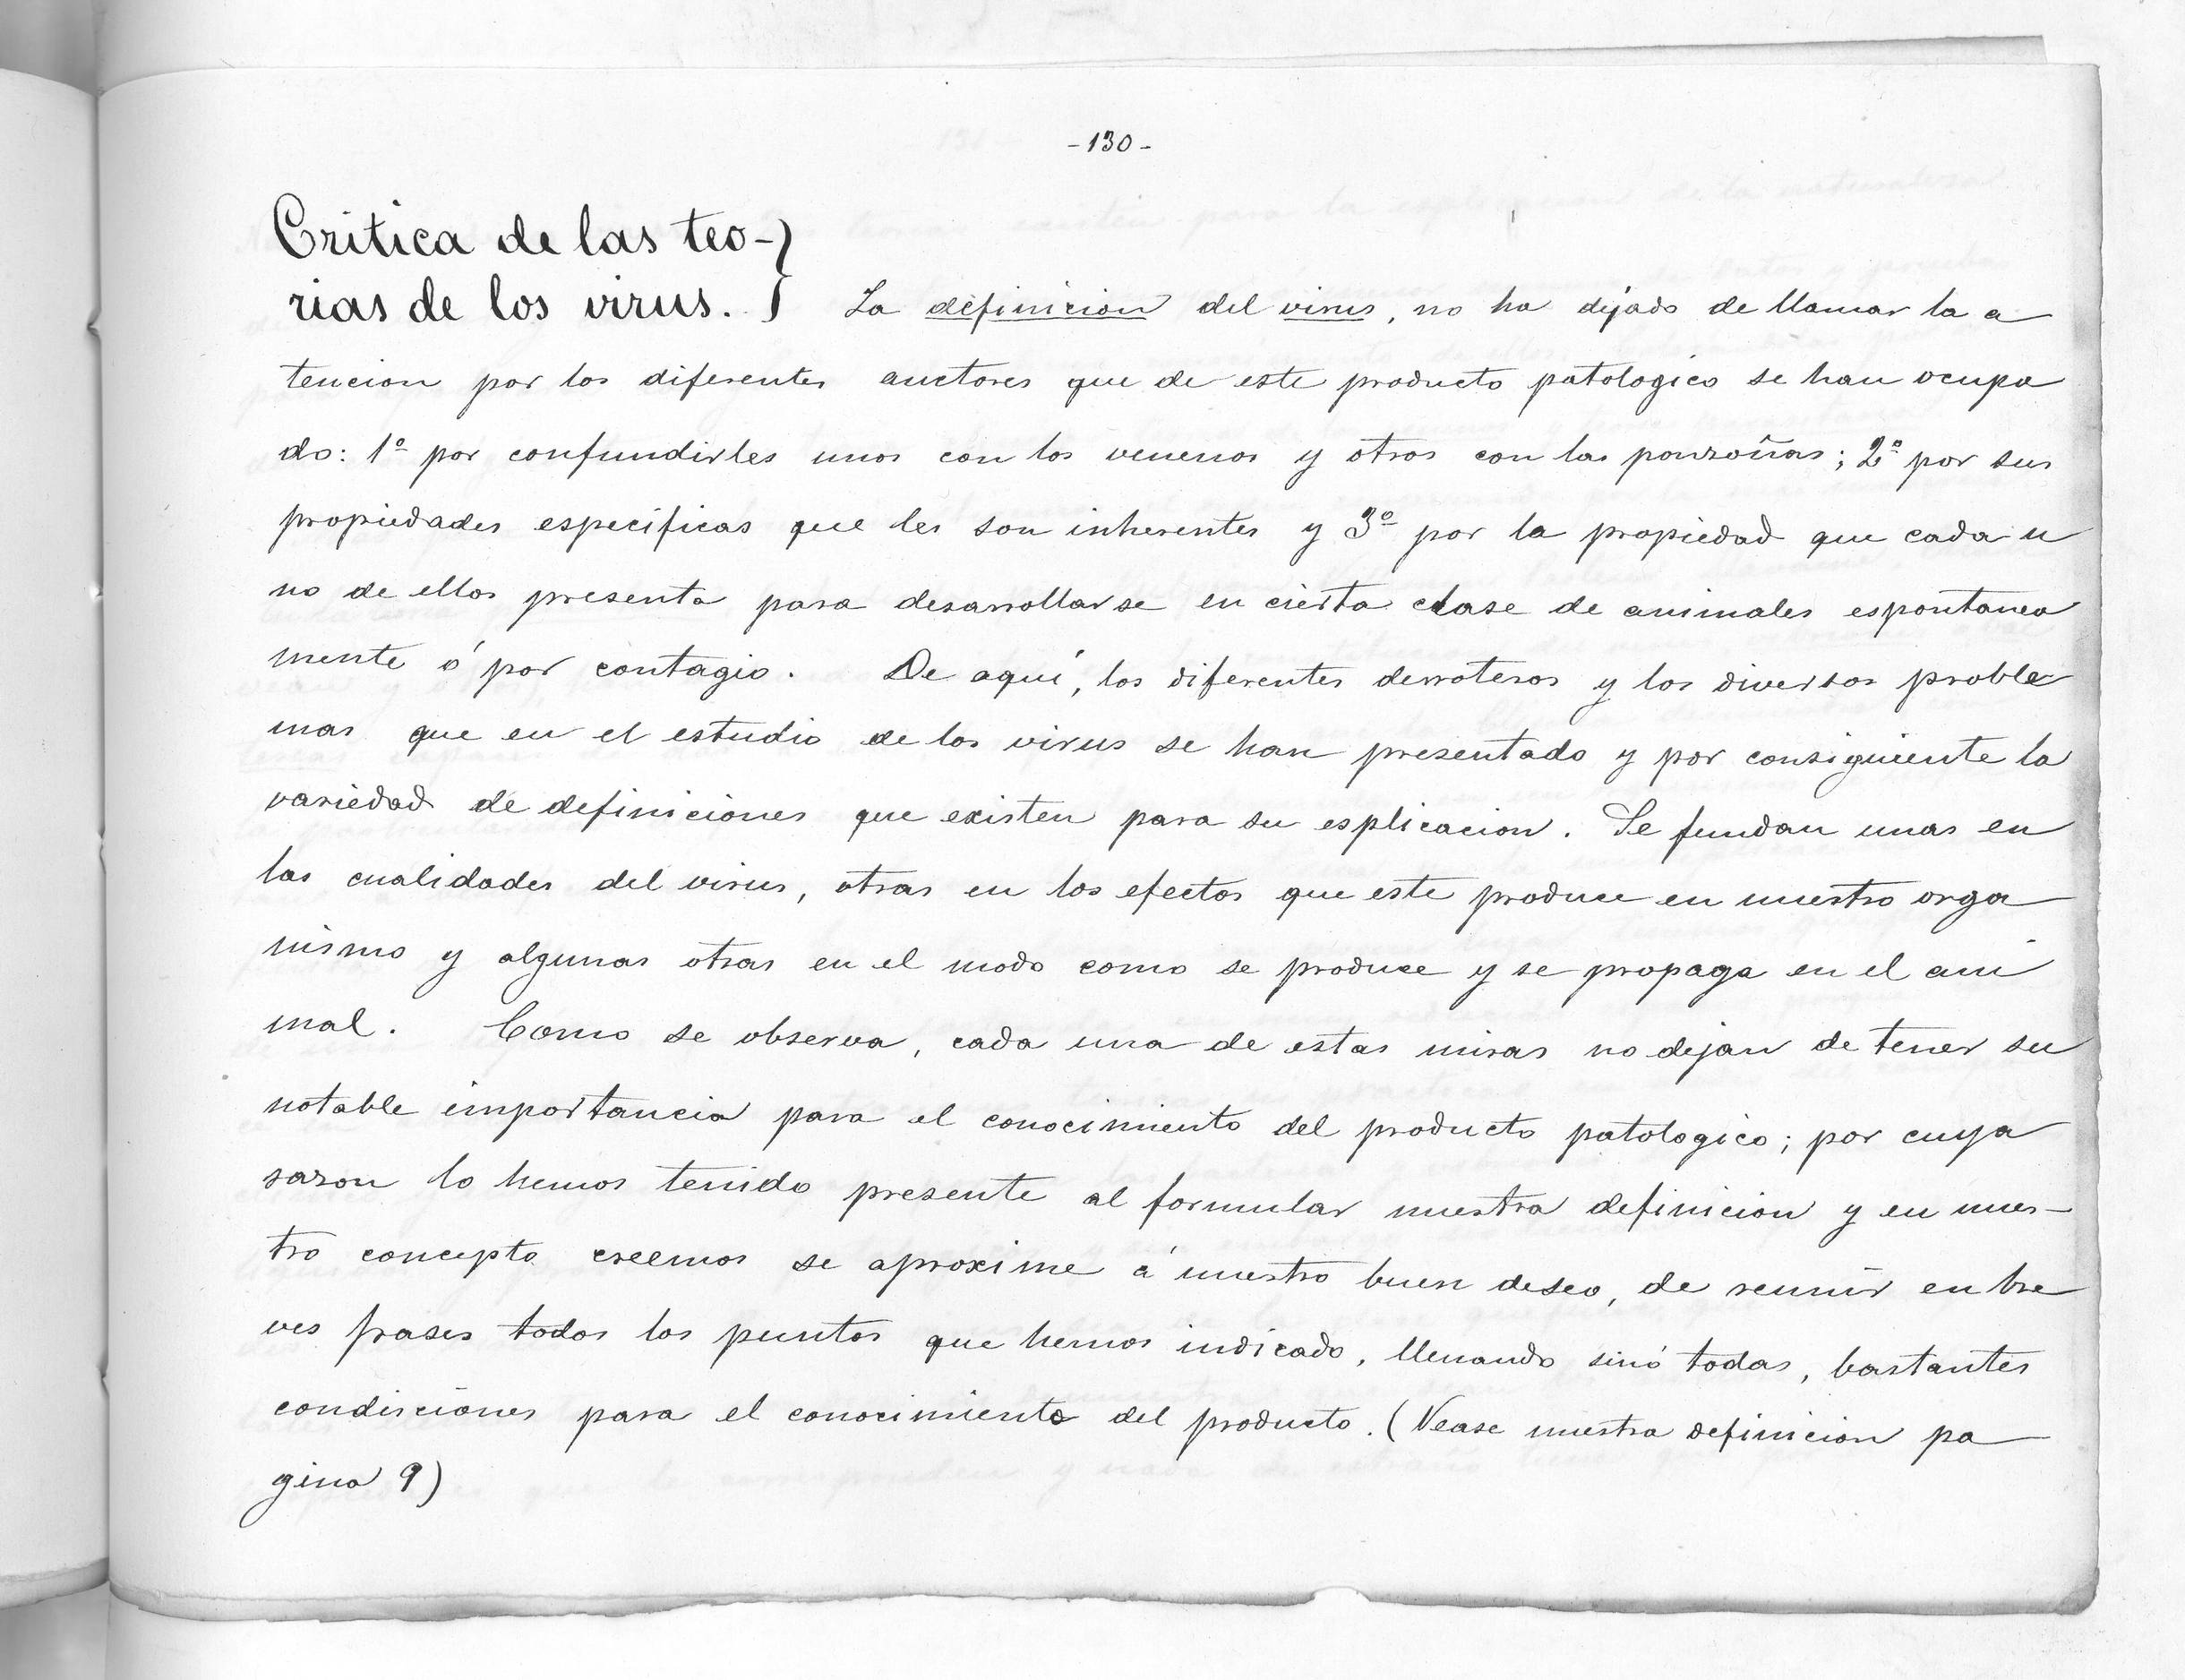 -130-
Critica de las teo-
rias de los virus. La definicion del virus, no ha dejado de llamar la a
tencion por los diferentes auctores que de este producto patologico se han ocupa
do: 1º por confundirles unos con los venenos y otros con las ponzoñas; 2º por sus
propiedades especificas que les son inherentes y 3º por la propiedad que cada u
no de ellos presenta para desarrollarse en cierta clase de animales espontanea
mente ó por contagio. De aquí, los diferentes derroteros y los diversos proble
mas que en el estudio de los virus se han presentado y por consiguiente la
variedad de definiciones que existen para su esplicacion. Se fundan unas en
las cualidades del virus, otras en los efectos que este produce en nuestro orga
nismo y algunas otras en el modo como se produce y se propaga en el ani
mal. Como se observa, cada una de estas miras no dejan de tener su
notable importancia para el conocimiento del producto patologico; por cuya
razon lo hemos tenido presente al formular nuestra definicion y en nues-
tro concepto creemos se aproxime á nuestro buen deseo, de reunir en bre
ves frases todos los puntos que hemos indicado, llenando sinó todas, bastantes
condiciones para el conocimiento del producto. (Vease nuestra definicion pa
gina 9)